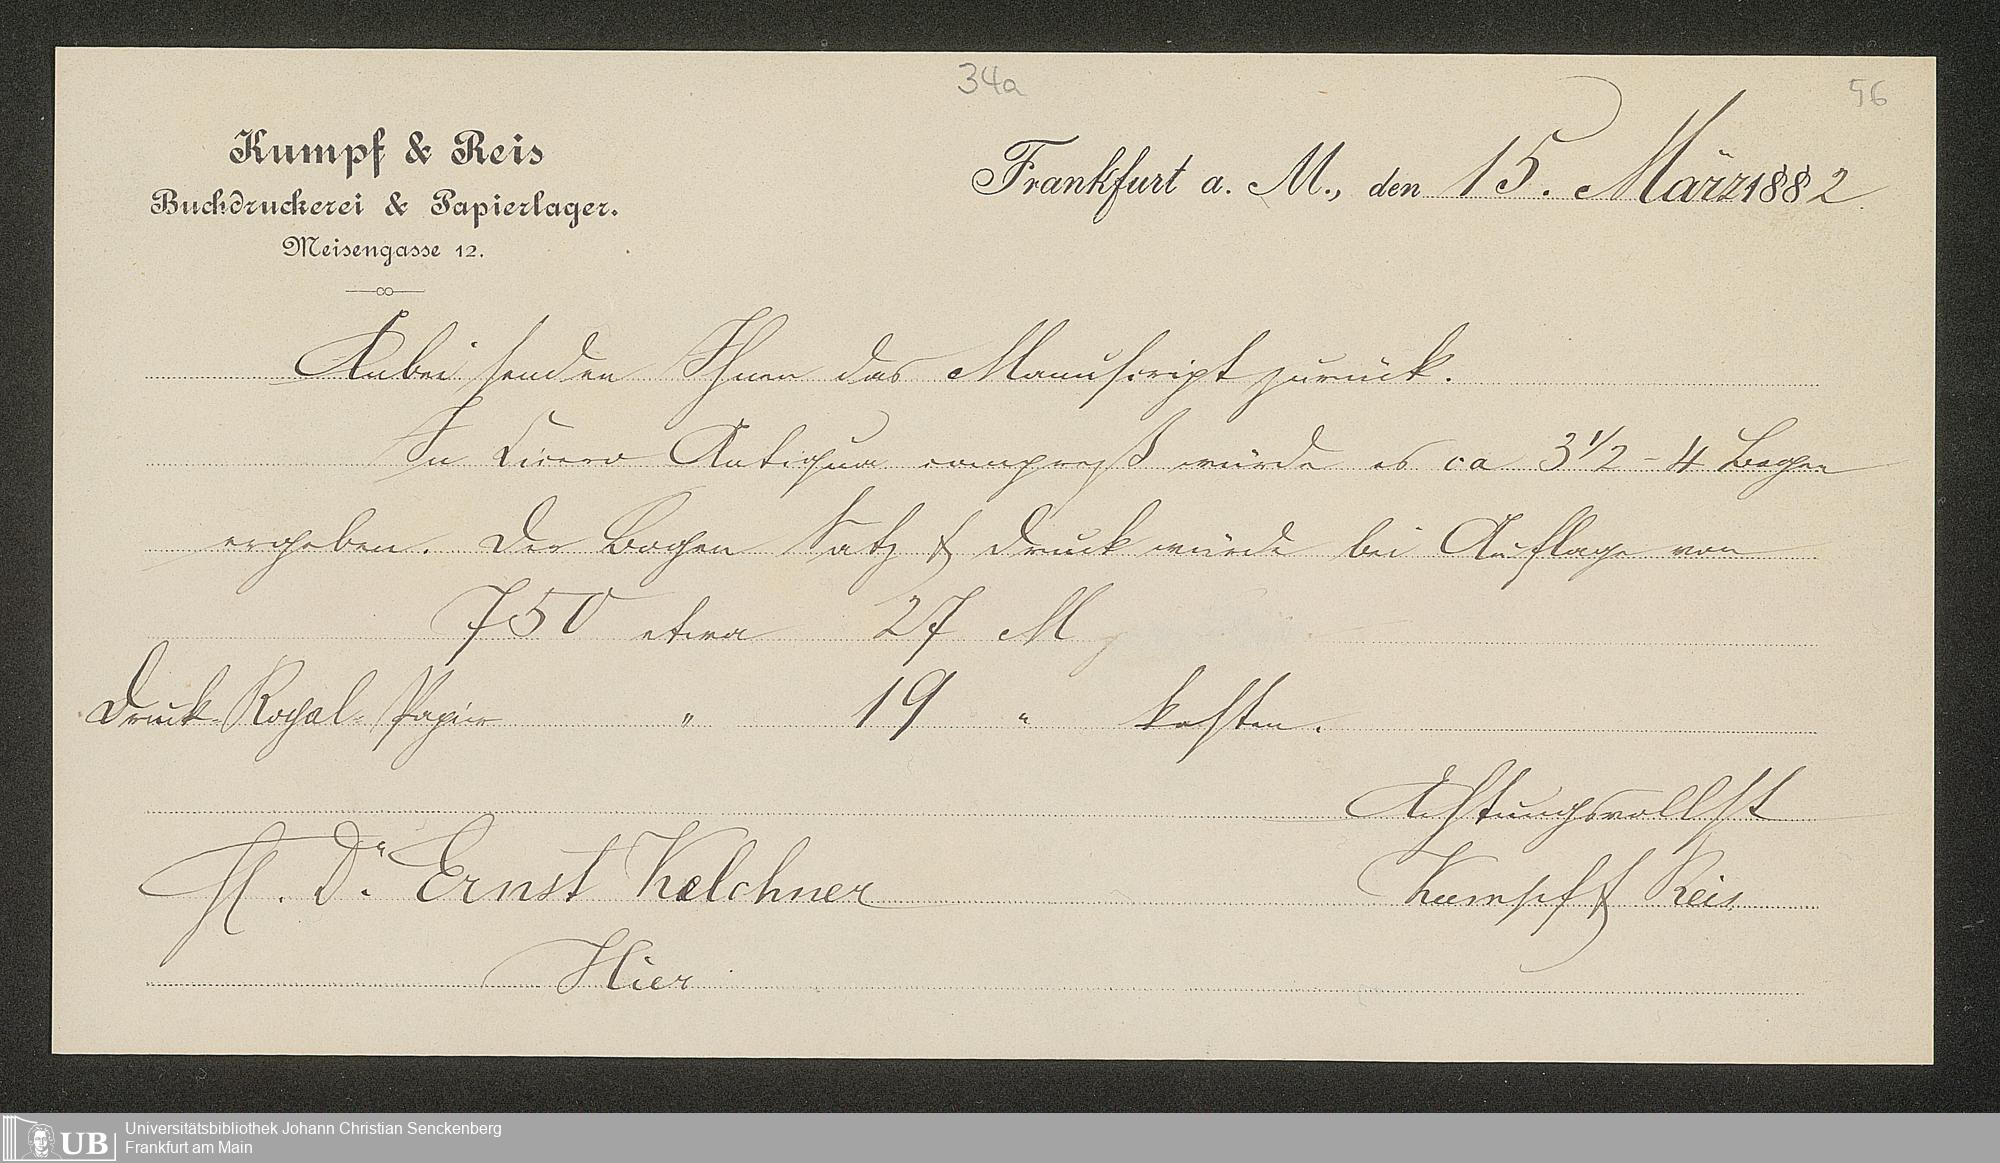 34a
56
Kumpf & Reis
Buchdruckerei & Papierlager.
Meisengasse 12.
Frankfurt a. M., den 15. März 1882.
Anbei senden Ihnen das Manuscript zurück.
In Cicero Antiqua compreß würde es ca 3 1/2 - 4 Bogen
ergeben. Der Bogen Satz & Druck würde bei Auflage von
750 etwa 27 M
Druck-Royal-Papier " 19 " kosten.
Achtungsvollst
H. Dr. Ernst Kelchner
Kumpf & Reis
Hier
UB
Universitätsbibliothek Johann Christian Senckenberg
Frankfurt am Main